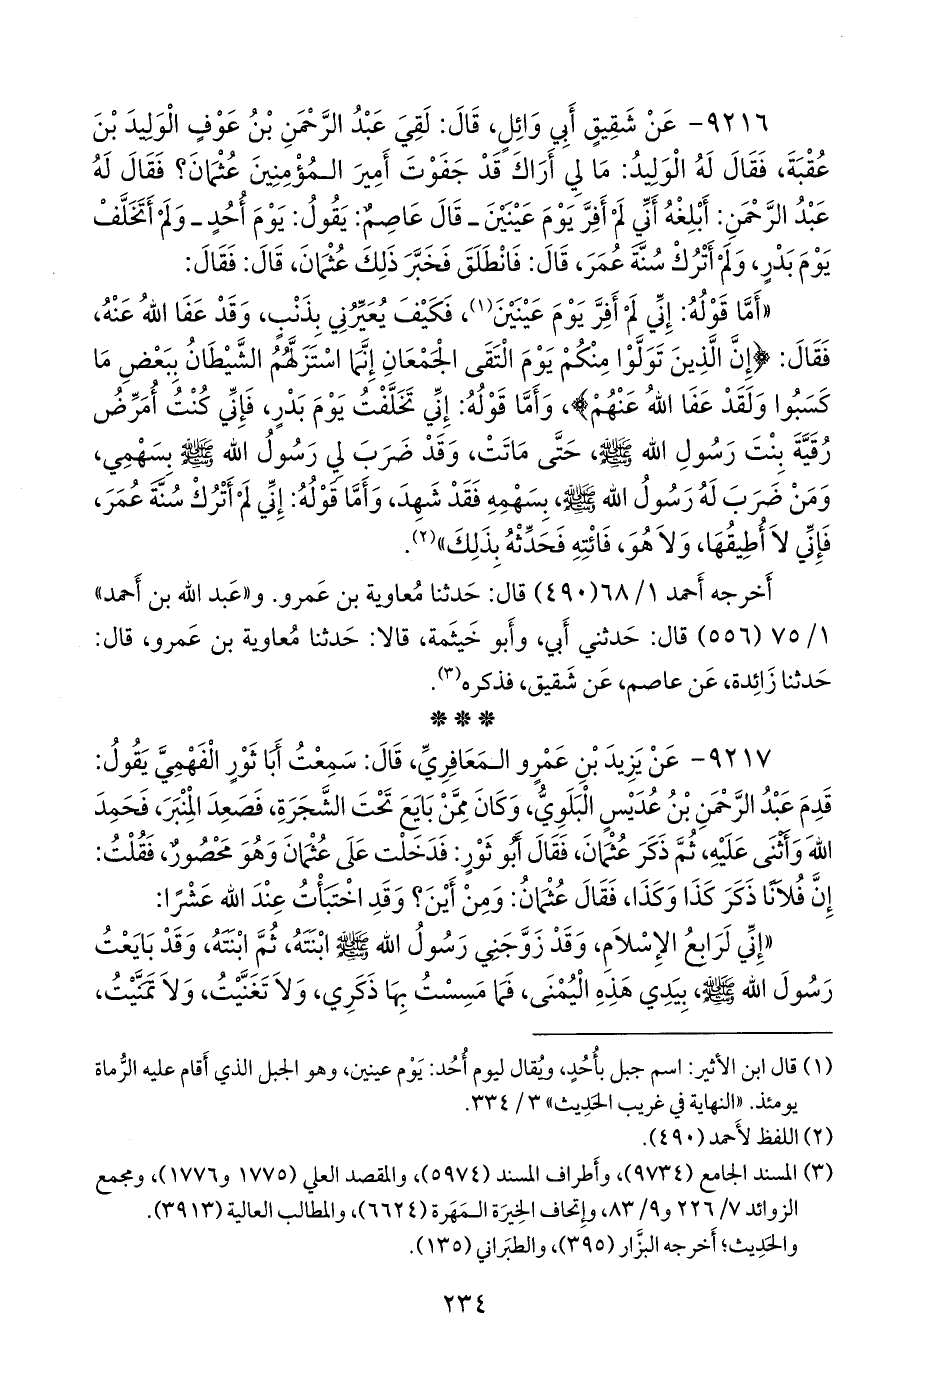 ٩٢١٦- عَنْ شَقِيقٍ أَبِي وَائِلٍ، قَالَ: لَقِيَ عَبْدُ الرَّحْمَنِ بْنُ عَوْفٍ الْوَلِيدَ بْنَ
عُقْبَةَ، فَقَالَ لَهُ الْوَلِيدُ: مَا لِي أَرَاكَ قَدْ جَفَوْتَ أَمِيرَ الـمُؤْمِنِينَ عُثْمَانَ؟ فَقَالَ لَهُ
عَبْدُ الرَّحْمَنِ: أَبْلِغْهُ أَنِّي لَمْ أَفِرَّ يَوْمَ عَيْنَيْنَ ـ قَالَ عَاصِمٌ: يَقُولُ: يَوْمَ أُحُدٍ ـ وَلَمْ أَتَخَلَّفْ
يَوْمَ بَدْرٍ، وَلَمْ أَتْرُكْ سُنَّةَ عُمَرَ، قَالَ: فَانْطَلَقَ فَخَبَّرَ ذَلِكَ عُثْمَانَ، قَالَ: فَقَالَ:
«أَمَّا قَوْلُهُ: إِنِّي لَمْ أَفِرَّ يَوْمَ عَيْنَيْنَ(١)، فَكَيْفَ يُعَيِّرُنِي بِذَنْبٍ، وَقَدْ عَفَا اللهُ عَنْهُ،
فَقَالَ: ﴿إِنَّ الَّذِينَ تَوَلَّوْا مِنْكُمْ يَوْمَ الْتَقَى الْجَمْعَانِ إِنَّمَا اسْتَزَلَّهُمُ الشَّيْطَانُ بِبَعْضِ مَا
كَسَبُوا وَلَقَدْ عَفَا اللهُ عَنْهُمْ﴾، وَأَمَّا قَوْلُهُ: إِنِّي تَخَلَّفْتُ يَوْمَ بَدْرٍ، فَإِنِّي كُنْتُ أُمَرِّضُ
رُقَيَّةَ بِنْتَ رَسُولِ الله ﷺ، حَتَّى مَاتَتْ، وَقَدْ ضَرَبَ لِي رَسُولُ الله ﷺ بِسَهْمِي،
وَمَنْ ضَرَبَ لَهُ رَسُولُ الله ﷺ، بِسَهْمِهِ فَقَدْ شَهِدَ، وَأَمَّا قَوْلُهُ: إِنِّي لَمْ أَتْرُكْ سُنَّةَ عُمَرَ،
فَإِنِّي لاَ أُطِيقُهَا، وَلاَ هُوَ، فَائْتِهِ فَحَدِّثْهُ بِذَلِكَ»(٢).
أَخرجه أَحمد ١/ ٦٨(٤٩٠) قال: حَدثنا مُعاوية بن عَمرو. و«عَبد الله بن أَحمد»
١/ ٧٥ (٥٥٦) قال: حَدثني أَبي، وأَبو خَيثَمة، قالا: حَدثنا مُعاوية بن عَمرو، قال:
حَدثنا زَائِدة، عَن عاصم، عَن شَقيق، فذكره(٣).
***
٩٢١٧- عَنْ يَزِيدَ بْنِ عَمْرٍو الـمَعَافِرِيِّ، قَالَ: سَمِعْتُ أَبَا ثَوْرٍ الْفَهْمِيَّ يَقُولُ:
قَدِمَ عَبْدُ الرَّحْمَنِ بْنُ عُدَيْسٍ الْبَلَوِيُّ، وَكَانَ مِمَّنْ بَايَعَ تَحْتَ الشَّجَرَةِ، فَصَعِدَ الْمِنْبَرَ، فَحَمِدَ
اللهَ وَأَثْنَى عَلَيْهِ، ثُمَّ ذَكَرَ عُثْمَانَ، فَقَالَ أَبُو ثَوْرٍ: فَدَخَلْتُ عَلَى عُثْمَانَ وَهُوَ مَحْصُورٌ، فَقُلْتُ:
إِنَّ فُلاَنًا ذَكَرَ كَذَا وَكَذَا، فَقَالَ عُثْمَانُ: وَمِنْ أَيْنَ؟ وَقَدِ اخْتَبَأْتُ عِنْدَ الله عَشْرًا:
«إِنِّي لَرَابِعُ الإِسْلاَمِ، وَقَدْ زَوَّجَنِي رَسُولُ الله ﷺ ابْنَتَهُ، ثُمَّ ابْنَتَهُ، وَقَدْ بَايَعْتُ
رَسُولَ الله ﷺ، بِيَدِي هَذِهِ الْيُمْنَى، فَمَا مَسِسْتُ بِهَا ذَكَرِي، وَلاَ تَغَنَّيْتُ، وَلاَ تَمَنَّيْتُ،
(١) قال ابن الأثير: اسم جبل بأُحُدٍ، ويُقال ليوم أُحُد: يَوْم عينين، وهو الجبل الذي أَقام عليه الرُّماة
يومئذ. «النهاية في غريب الحَدِيث» ٣/ ٣٣٤.
(٢) اللفظ لأَحمد (٤٩٠).
(٣) المسند الجامع (٩٧٣٤)، وأَطراف المسند (٥٩٧٤)، والمقصد العلي (١٧٧٥ و١٧٧٦)، ومجمع
الزوائد ٧/ ٢٢٦ و٩/ ٨٣، وإِتحاف الخِيرَة الـمَهَرة (٦٦٢٤)، والمطالب العالية (٣٩١٣).
والحَدِيث؛ أَخرجه البزَّار (٣٩٥)، والطبَراني (١٣٥).
٢٣٤